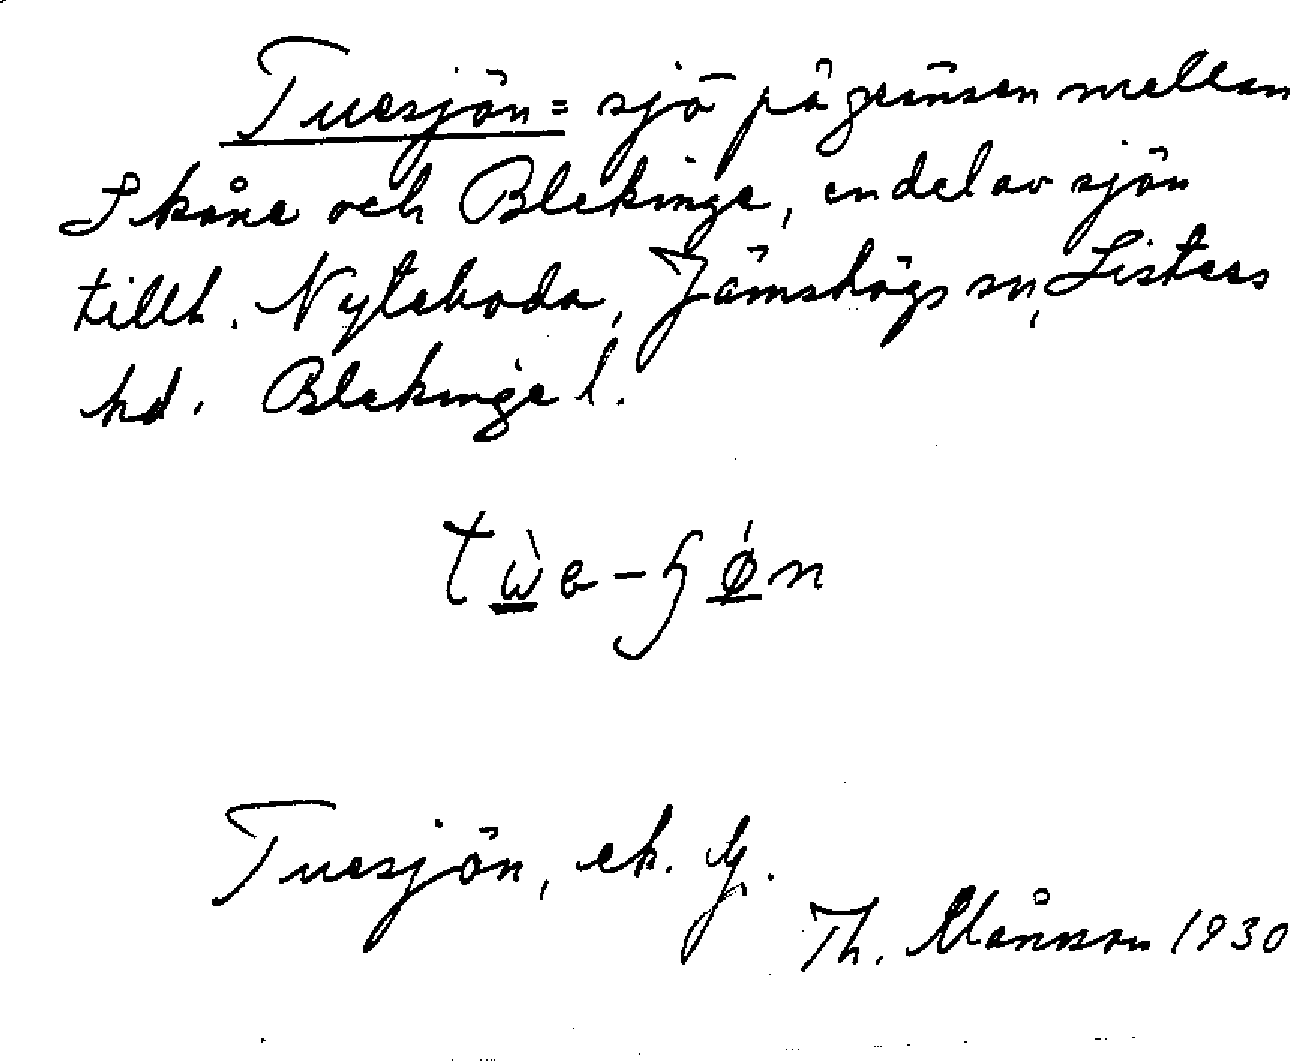 Tuesjön = sjö på gränsen mellan
Skåne och Blekinge, en del av sjön
tillh. Nyteboda, Jämshögs sn, Listers
hd. Blekinge l.
tùe-ʃǿn
Tuesjön, ek. bl.
Th. Månsson 1930